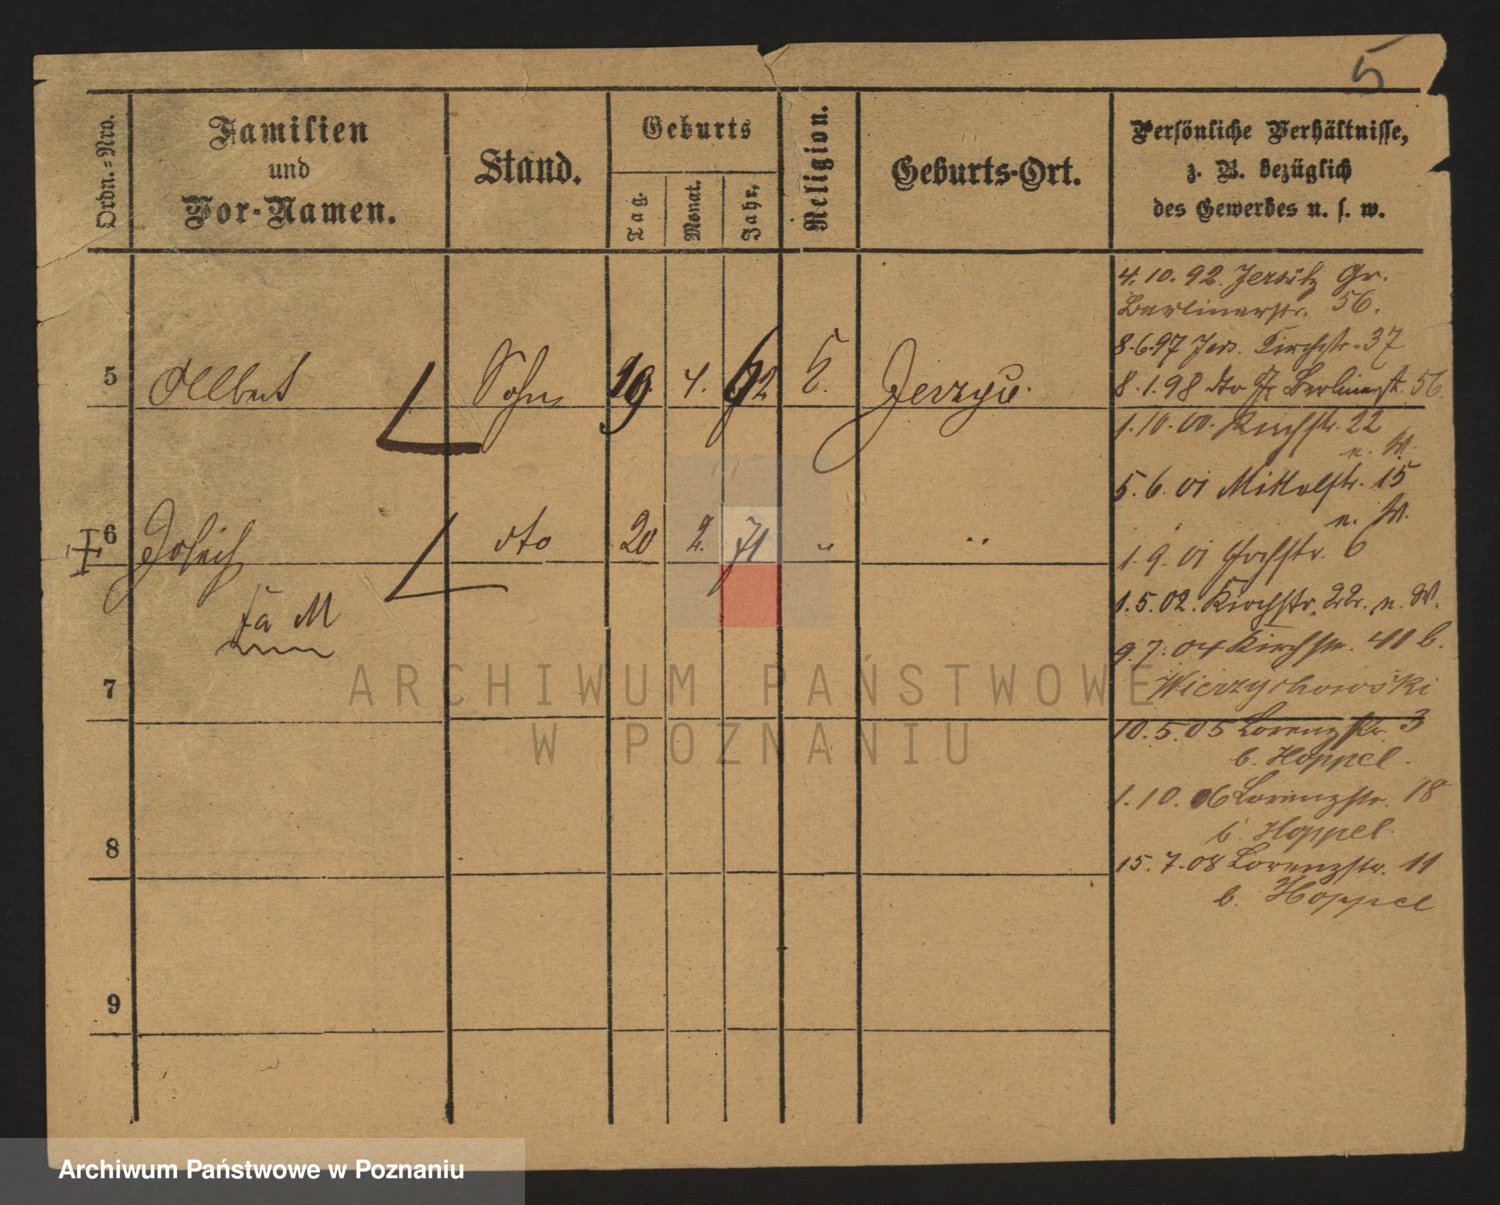 5
Ordn.=Nro.
Familien
und
Vor-Namen.
Stand.
Geburts
Tag.
Monat.
Jahr.
Religion.
Geburts-Ort.
Persönliche Verhältnisse,
z. B. bezüglich
des Gewerbes u. s. w.
4.10.92. Jersitz Gr.
Berlinerstr. 56.
8.6.97 Jers. Kirchstr. 37
8.1.98 dto Gr Berlinerst. 56
5 Albert Sohn 19 4. 72
1.10.00. Kirchstr. 22
n. W.
5.6.01 Mittelstr. 15
n. W.
6 dto 20 2. 71 " "
1.9.01 6
1.5.02. Kirchstr. 22. n. W.
9.7.04 Kirchstr. 41 b.
Wierzychowski
7
10.5.05 Lorenzstr. 3
b. Hoppel.
1.10.06 Lorenzstr. 18
b. Hoppel.
8
15.7.08 Lorenzstr. 11
b. Hoppel
9
ARCHIWUM PAŃSTWOWE
W POZNANIU
Archiwum Państwowe w Poznaniu